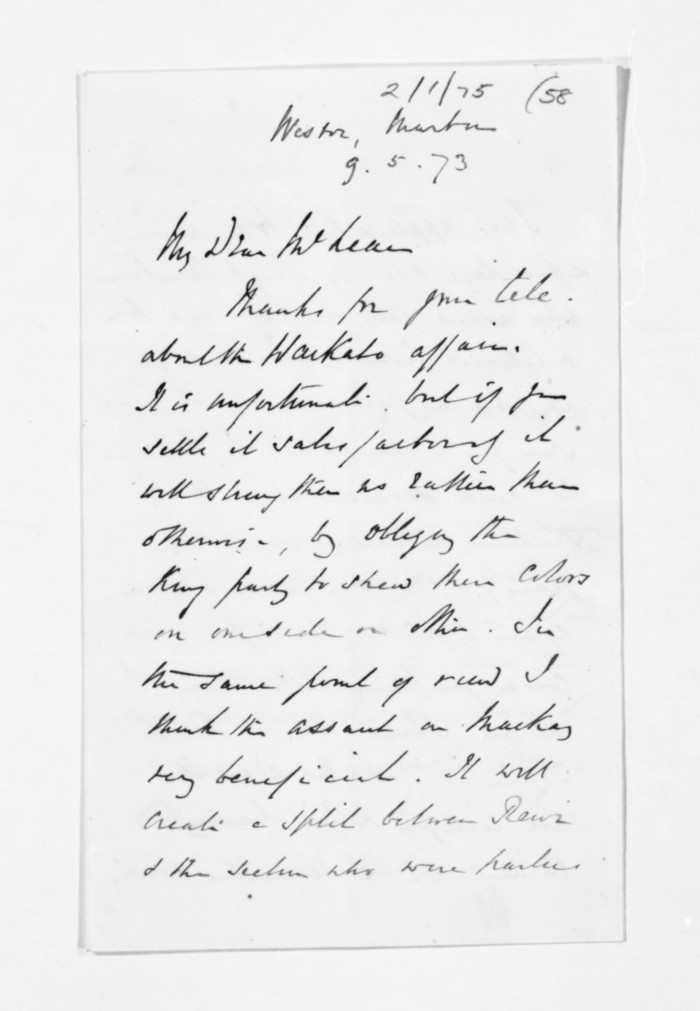 2/1/75 (58
Westoe, Marton
9.5.73
My Dear McLean
Thanks for your tele.
about the Waikato affair.
It is unfortunate. but if you
settle it satisfactorily it
will strengthen us rather than
otherwise, by obliging the
King party to shew their colors
on one side or other. In
the same point of view I
think the assault on Mackay
very beneficial. It will
create a split between Rewi
& the section who were parties